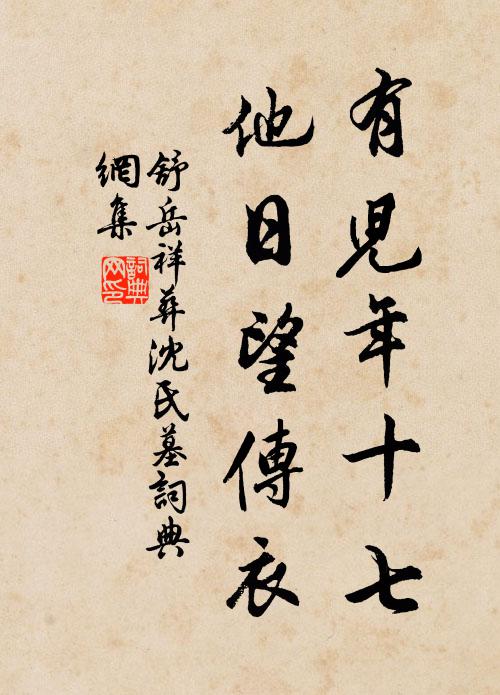 有兒年十七
他日望傳衣
舒岳祥葬沈氏墓詞典
網集
詞典網印